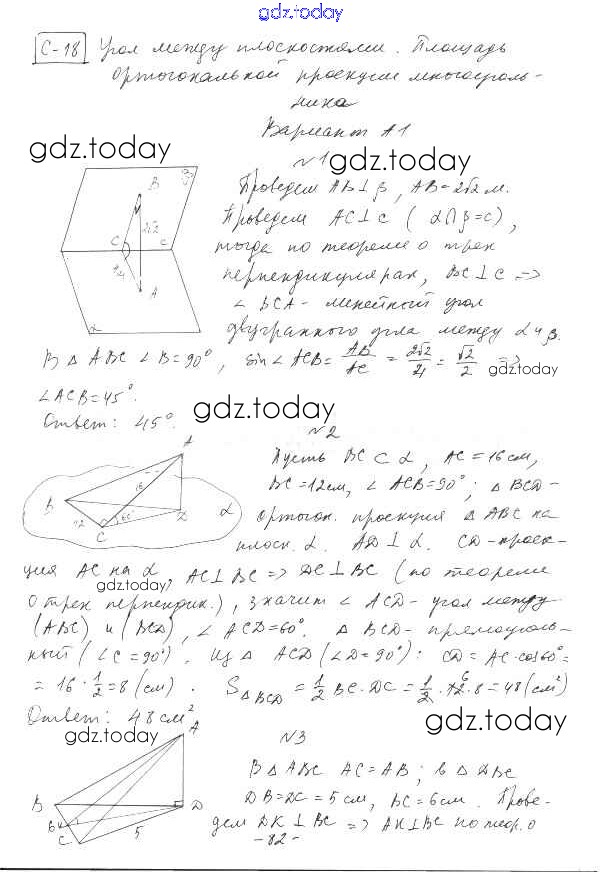 gdz.today
С-18 Угол между плоскостями. Площадь
ортогональной проекции многоуголь-
ника
Вариант А1
gdz.today
№1
gdz.today
Проведем AB⊥β, AB=2√2 м.
Проведем AC⊥c (α∩β=c),
тогда по теореме о трех
перпендикулярах, BC⊥c =>
∠BCA - линейный угол
двугранного угла между α и β.
β
B
2√2
C
c
4
A
α
В △ABC ∠B=90°, sin∠ACB = AB/AC = 2√2/4 = √2/2 =>
gdz.today
∠ACB=45°.
Ответ: 45°.
gdz.today
№2
Пусть BC⊂α, AC=16 см,
BC=12 см, ∠ACB=90°; △BCD-
ортогон. проекция △ABC на
плоск. α. AD⊥α. CD-проек-
A
16
B
12
C
60°
D
α
ция AC на α, AC⊥BC => DC⊥BC (по теореме
gdz.today
о трех перпендик.), значит ∠ACD-угол между
(ABC) и (BCD), ∠ACD=60°. △BCD-прямоуголь-
ный (∠C=90°). Из △ACD (∠D=90°): CD=AC·cos60°=
= 16·1/2=8 (см). S△BCD = 1/2 BC·DC = 1/2·12·8=48 (см²)
Ответ: 48 см²
gdz.today
gdz.today
№3
В △ABC AC=AB; в △DBC
DB=DC=5 см, BC=6 см. Прове-
дем DK⊥BC => AK⊥BC по теор. о
A
B
D
K
C
5
-82-